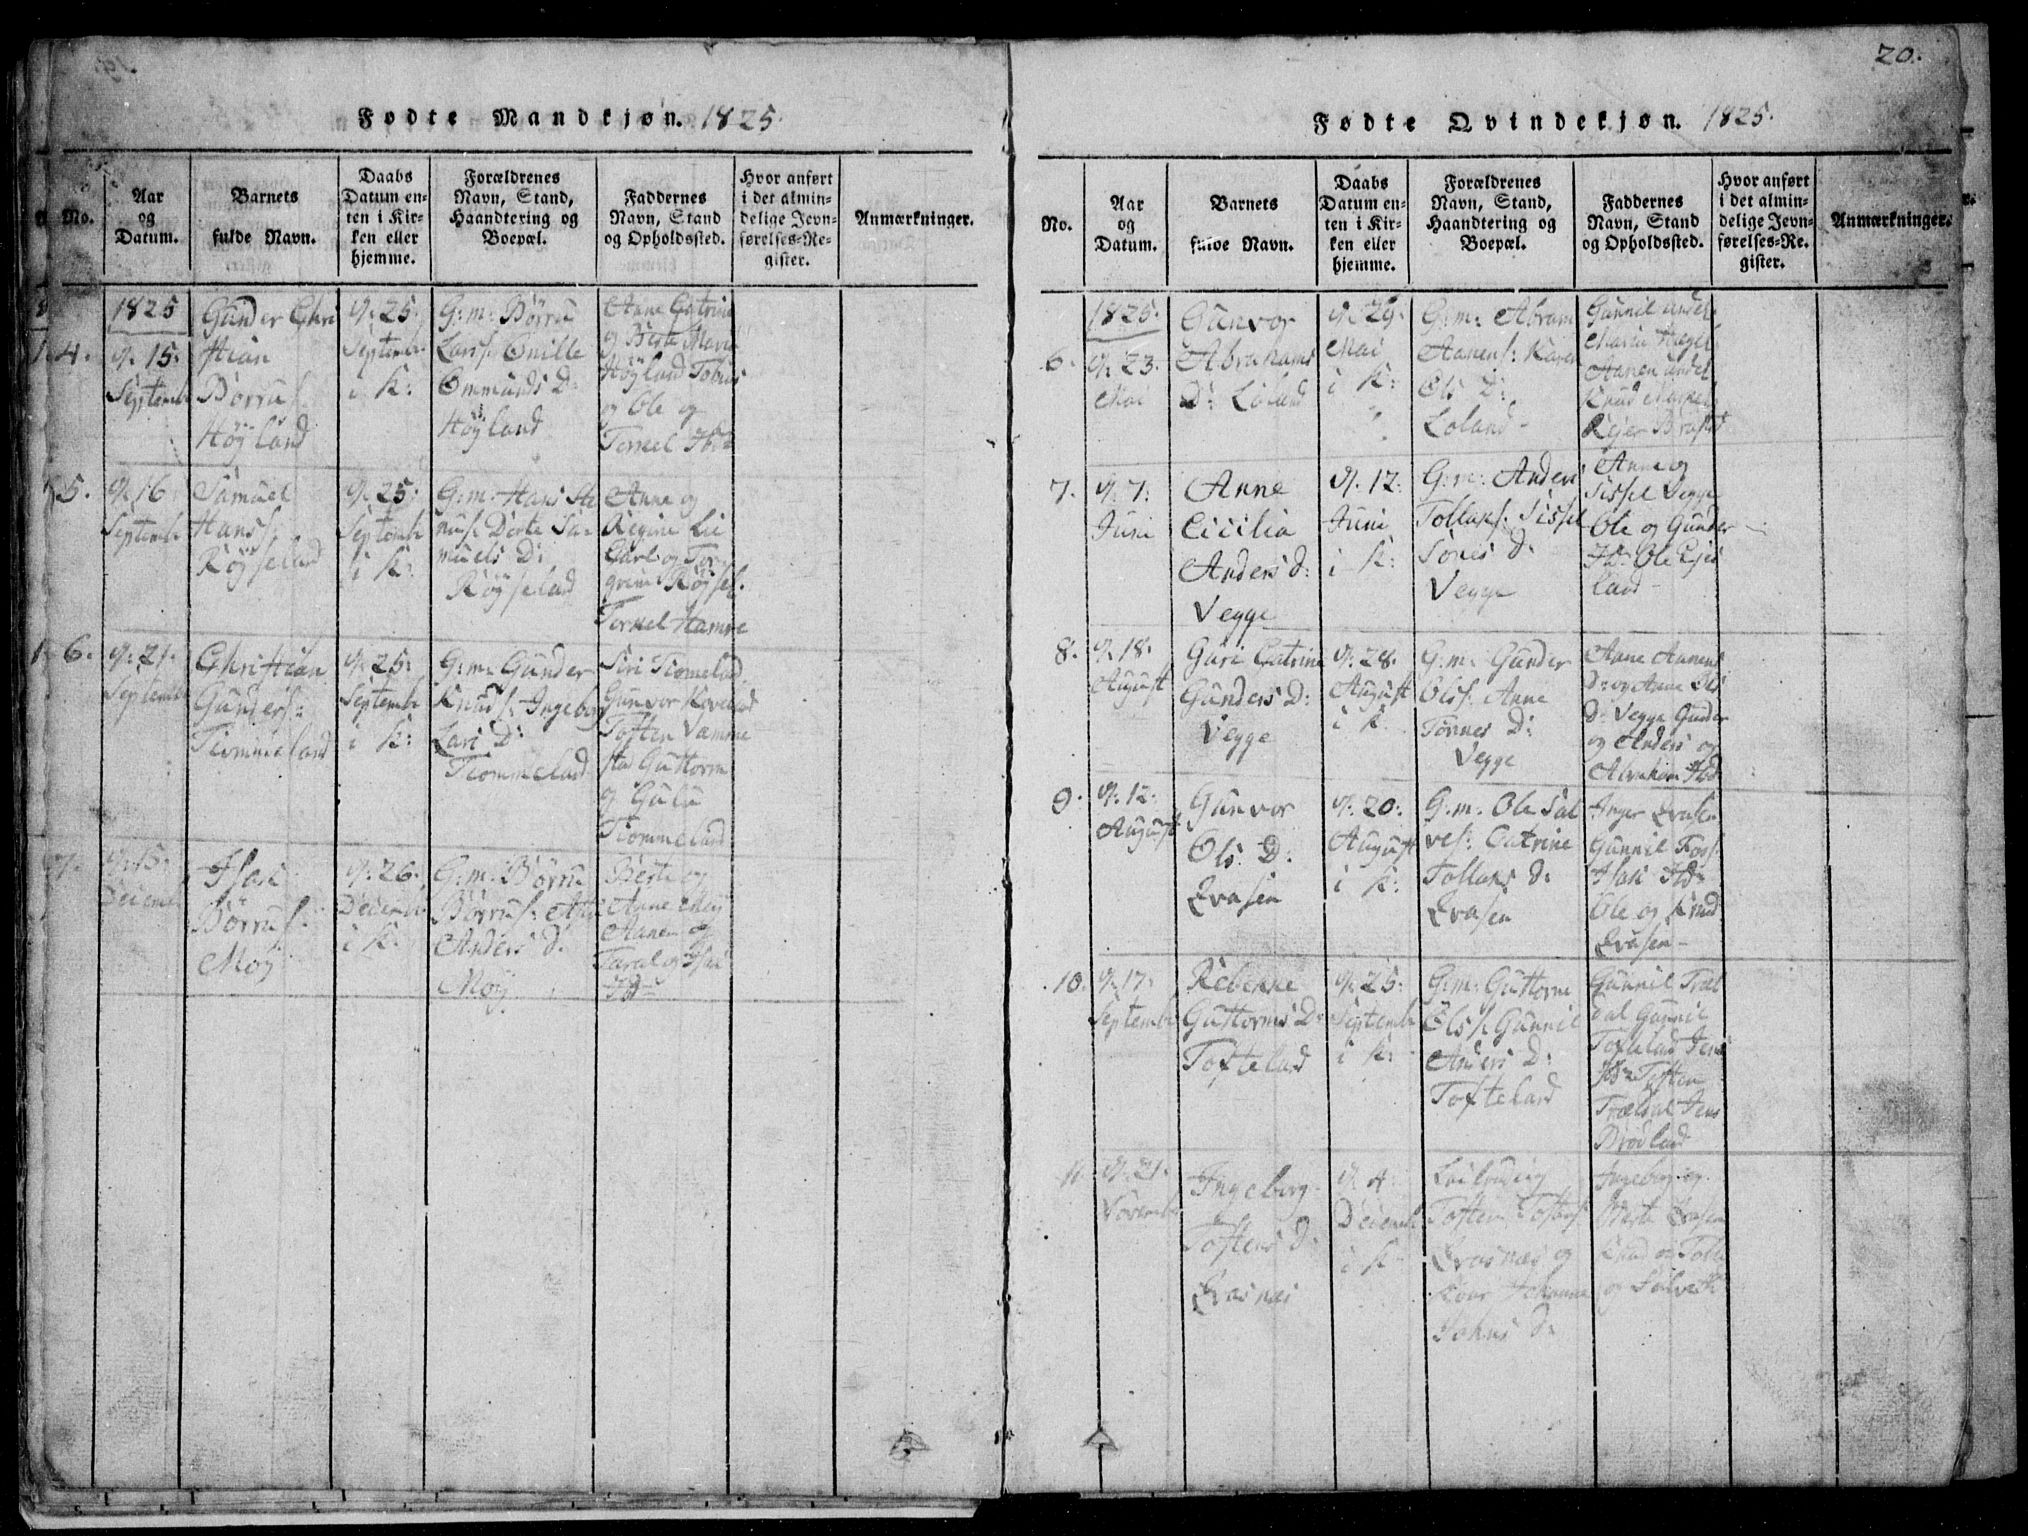 20.
Fødte Mandkjøn. 1825.
No.
Aar
og
Datum.
Barnets
fulde Navn.
Daabs
Datum en-
ten i Kir-
ken eller
hjemme.
Forældrenes
Navn, Stand,
Haandtering og
Boepæl.
Faddernes
Navn, Stand
og Opholdssted.
Hvor anført
i det almin-
delige Jevn-
førelses-Re-
gister.
Anmærkninger.
4.
1825
d. 15.
Septembr
Gunder Chri
stian
Börrus.
Höyland
d. 25.
Septembr
i K:
G: m: Börru
Lars: Gunille
Ommunds D:
Höyland
Anne Catrine
og Berte Marie
Höyland Tobias
og Ole og
Terkel Ibd
5.
d. 16.
Septembr
Samuel
Hanss:
Röyseland
d. 25:
Septembr
i K:
G: m: Hans
Dorte Sa-
muels D:
Röyseland
Anne og
Regine Lie
Carl og Tor
grim Röysel.
Terkel Hamre
6.
d. 21.
Septembr
Christian
Gunders:
Tiommeland
d. 25:
Septembr
i K:
G: m: Gunder
Knuds: Ingeborg
Lars D:
Tiommeland
Siri Tiomeland
Gunvor Koveland
Tosten Vamme
stad Guttorm
og Gulu
Tiommeland
7.
d. 15.
Decemb
Isak
Börrus.
Moy
d. 26.
Decembr
i K:
G: m: Börru
Börrus:
Anders D.
Moy
Berte og
Anne Moy
Aanen og
Taral og Isak
Ibd
Fødte Qvindekjøn. 1825.
No.
Aar
og
Datum.
Barnets
fulde Navn.
Daabs
Datum en-
ten i Kir-
ken eller
hjemme.
Forældrenes
Navn, Stand,
Haandtering og
Boepæl.
Faddernes
Navn, Stand
og Opholdssted.
Hvor anført
i det almin-
delige Jevn-
førelses-Re-
gister.
Anmærkninger.
6.
1825.
d. 23.
Mai
Gunvor
Abrahams
D: Löland
d. 29.
Mai
i K:
G: m: Abram
Aanens: Karen
Ols D:
Loland
Gunnil
Maria
Aanen
Knud
7.
d. 7:
Juni
Anne
Cicilia
Anders D:
Vegge
d. 12:
Juni
i K:
G: m: Anders
Tollaks: Sissel
Tönes D:
Vegge
Anne og
Sissel Vegge
Ole og Gunder
Ibd Ole
land
8.
d. 18.
August
Guri Catrine
Gunders D:
Vegge
d. 28.
August
i K.
G: m: Gunder
Olss. Anne
Tönnes D:
Vegge
Anne Aanens
D: og Anne Ols
D: Vegge Gunder
og Anders og
Abraham Ibd
9.
d. 12.
August
Gunvor
Ols D:
Evasen
d. 20.
August
i K:
G: m: Ole Sal
ves: Catrine
Tollaks D:
Evasen
Inger Evasen
Gunnil Foss
Isak Ibd
Ole og Knud
Evasen
10.
d. 17.
Septembr
Rebekke
Guttorms D:
Tofteland
d. 25:
Septembr
i K:
G: m: Guttorm
Olss. Gunnil
Anders D:
Tofteland
Gunnil Træl
dal Gunnil
Tofteland Jens
Ibd Tosten
Trældal Jens
Brödland
11.
d. 21.
Novembr
Ingeborg
Tostens D:
Evasnæs
d. 4.
Decembr
i K
Tosten Tostens.
Evasnæs og
Kone Johanne
D:
Ingeborg og
Berte Evasen
Knud og
og